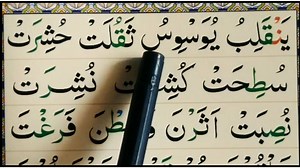 يَنْقَلِبُ يُوَسْوِسُ ثَقُلَت حُشِرَتْ
سُطِحَتْ نُشِرَتْ
نُصِبَتْ اَثَرْنَ فَرَغْتَ